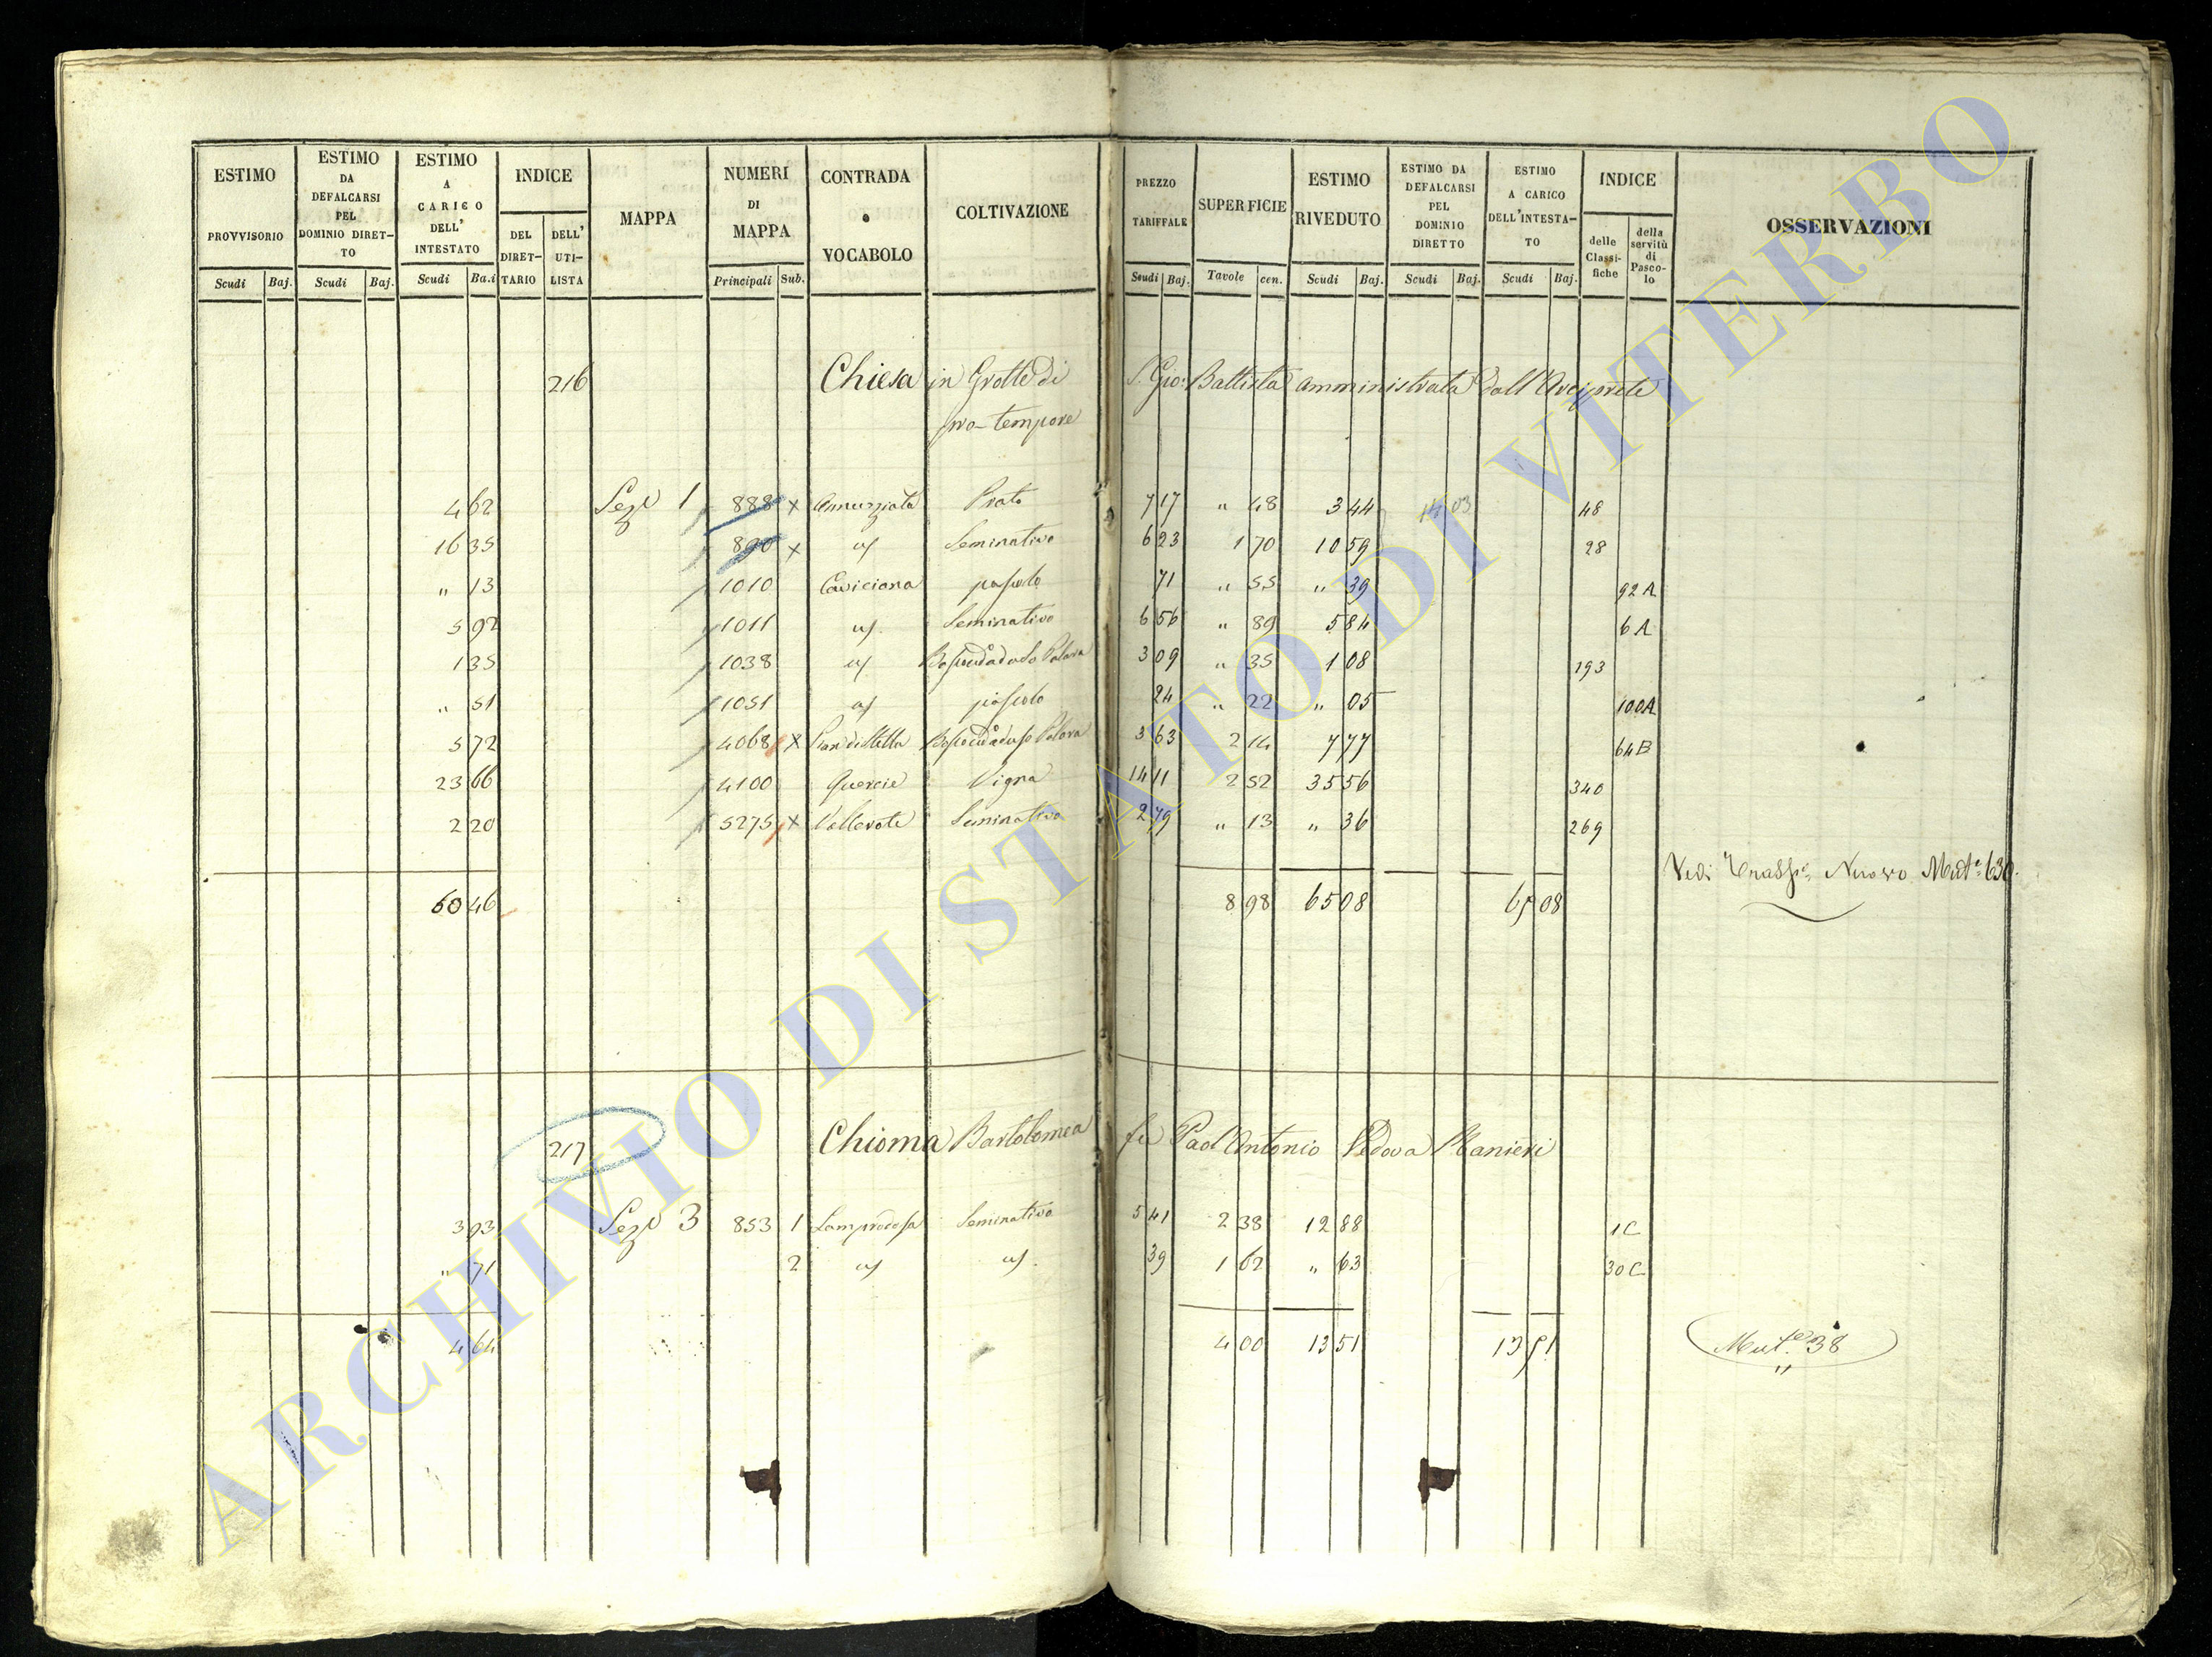 ESTIMO PROVVISORIO | ESTIMO DA DEFALCARSI PEL DOMINIO DIRET-TO | ESTIMO A CARICO DELL' INTESTATO | INDICE | MAPPA | NUMERI DI MAPPA | CONTRADA o VOCABOLO | COLTIVAZIONE | PREZZO TARIFFALE | SUPERFICIE | ESTIMO RIVEDUTO | ESTIMO DA DEFALCARSI PEL DOMINIO DIRETTO | ESTIMO A CARICO DELL'INTESTA-TO | INDICE | OSSERVAZIONI
Scudi | Baj. | Scudi | Baj. | Scudi | Ba.i | DEL DIRET-TARIO | DELL' UTI-LISTA | Principali | Sub. | Scudi | Baj. | Tavole | cen. | Scudi | Baj. | Scudi | Baj. | Scudi | Baj. | delle Classi-fiche | della servitù di Pasco-lo
216 Chiesa in Grotte di S. Gio: Battista amministrata dall'Arciprete
pro-tempore
4 62 | Sez.e 1 | 888 x | Annunziata | Prato | 7 17 | " 48 | 3 44 | 14 03 | 48
16 35 | 890 x | uf | Seminativo | 6 23 | 1 70 | 10 59 | 28
" 13 | 1010 | Caviciana | pascolo | 71 | " 55 | " 39 | 92 A
5 92 | 1011 | uf | Seminativo | 6 56 | " 89 | 5 84 | 6 A
1 35 | 1038 | uf | 3 09 | " 35 | 1 08 | 193
" 51 | 1051 | uf | pascolo | 24 | " 22 | " 05 | 100A
5 72 | 4068 x | 3 63 | 2 14 | 7 77 | 64B
23 66 | 4100 | Quercie | Vigna | 14 11 | 2 52 | 35 56 | 340
2 20 | 5275 x | Vallerote | Seminativo | 2 79 | " 13 | " 36 | 269
Vedi Nuovo Mut.e 630.
60 46 | 8 98 | 65 08 | 65 08
217 Chioma Bartolomea fu Paol'Antonio Vedova Ranieri
3 93 | Sez.e 3 | 853 | 1 | Seminativo | 5 41 | 2 38 | 12 88 | 1C
" 71 | 2 | uf | uf. | 39 | 1 62 | " 63 | 30 C
4 64 | 4 00 | 13 51 | 13 51 | Mut.e 38
ARCHIVIO DI STATO DI VITERBO